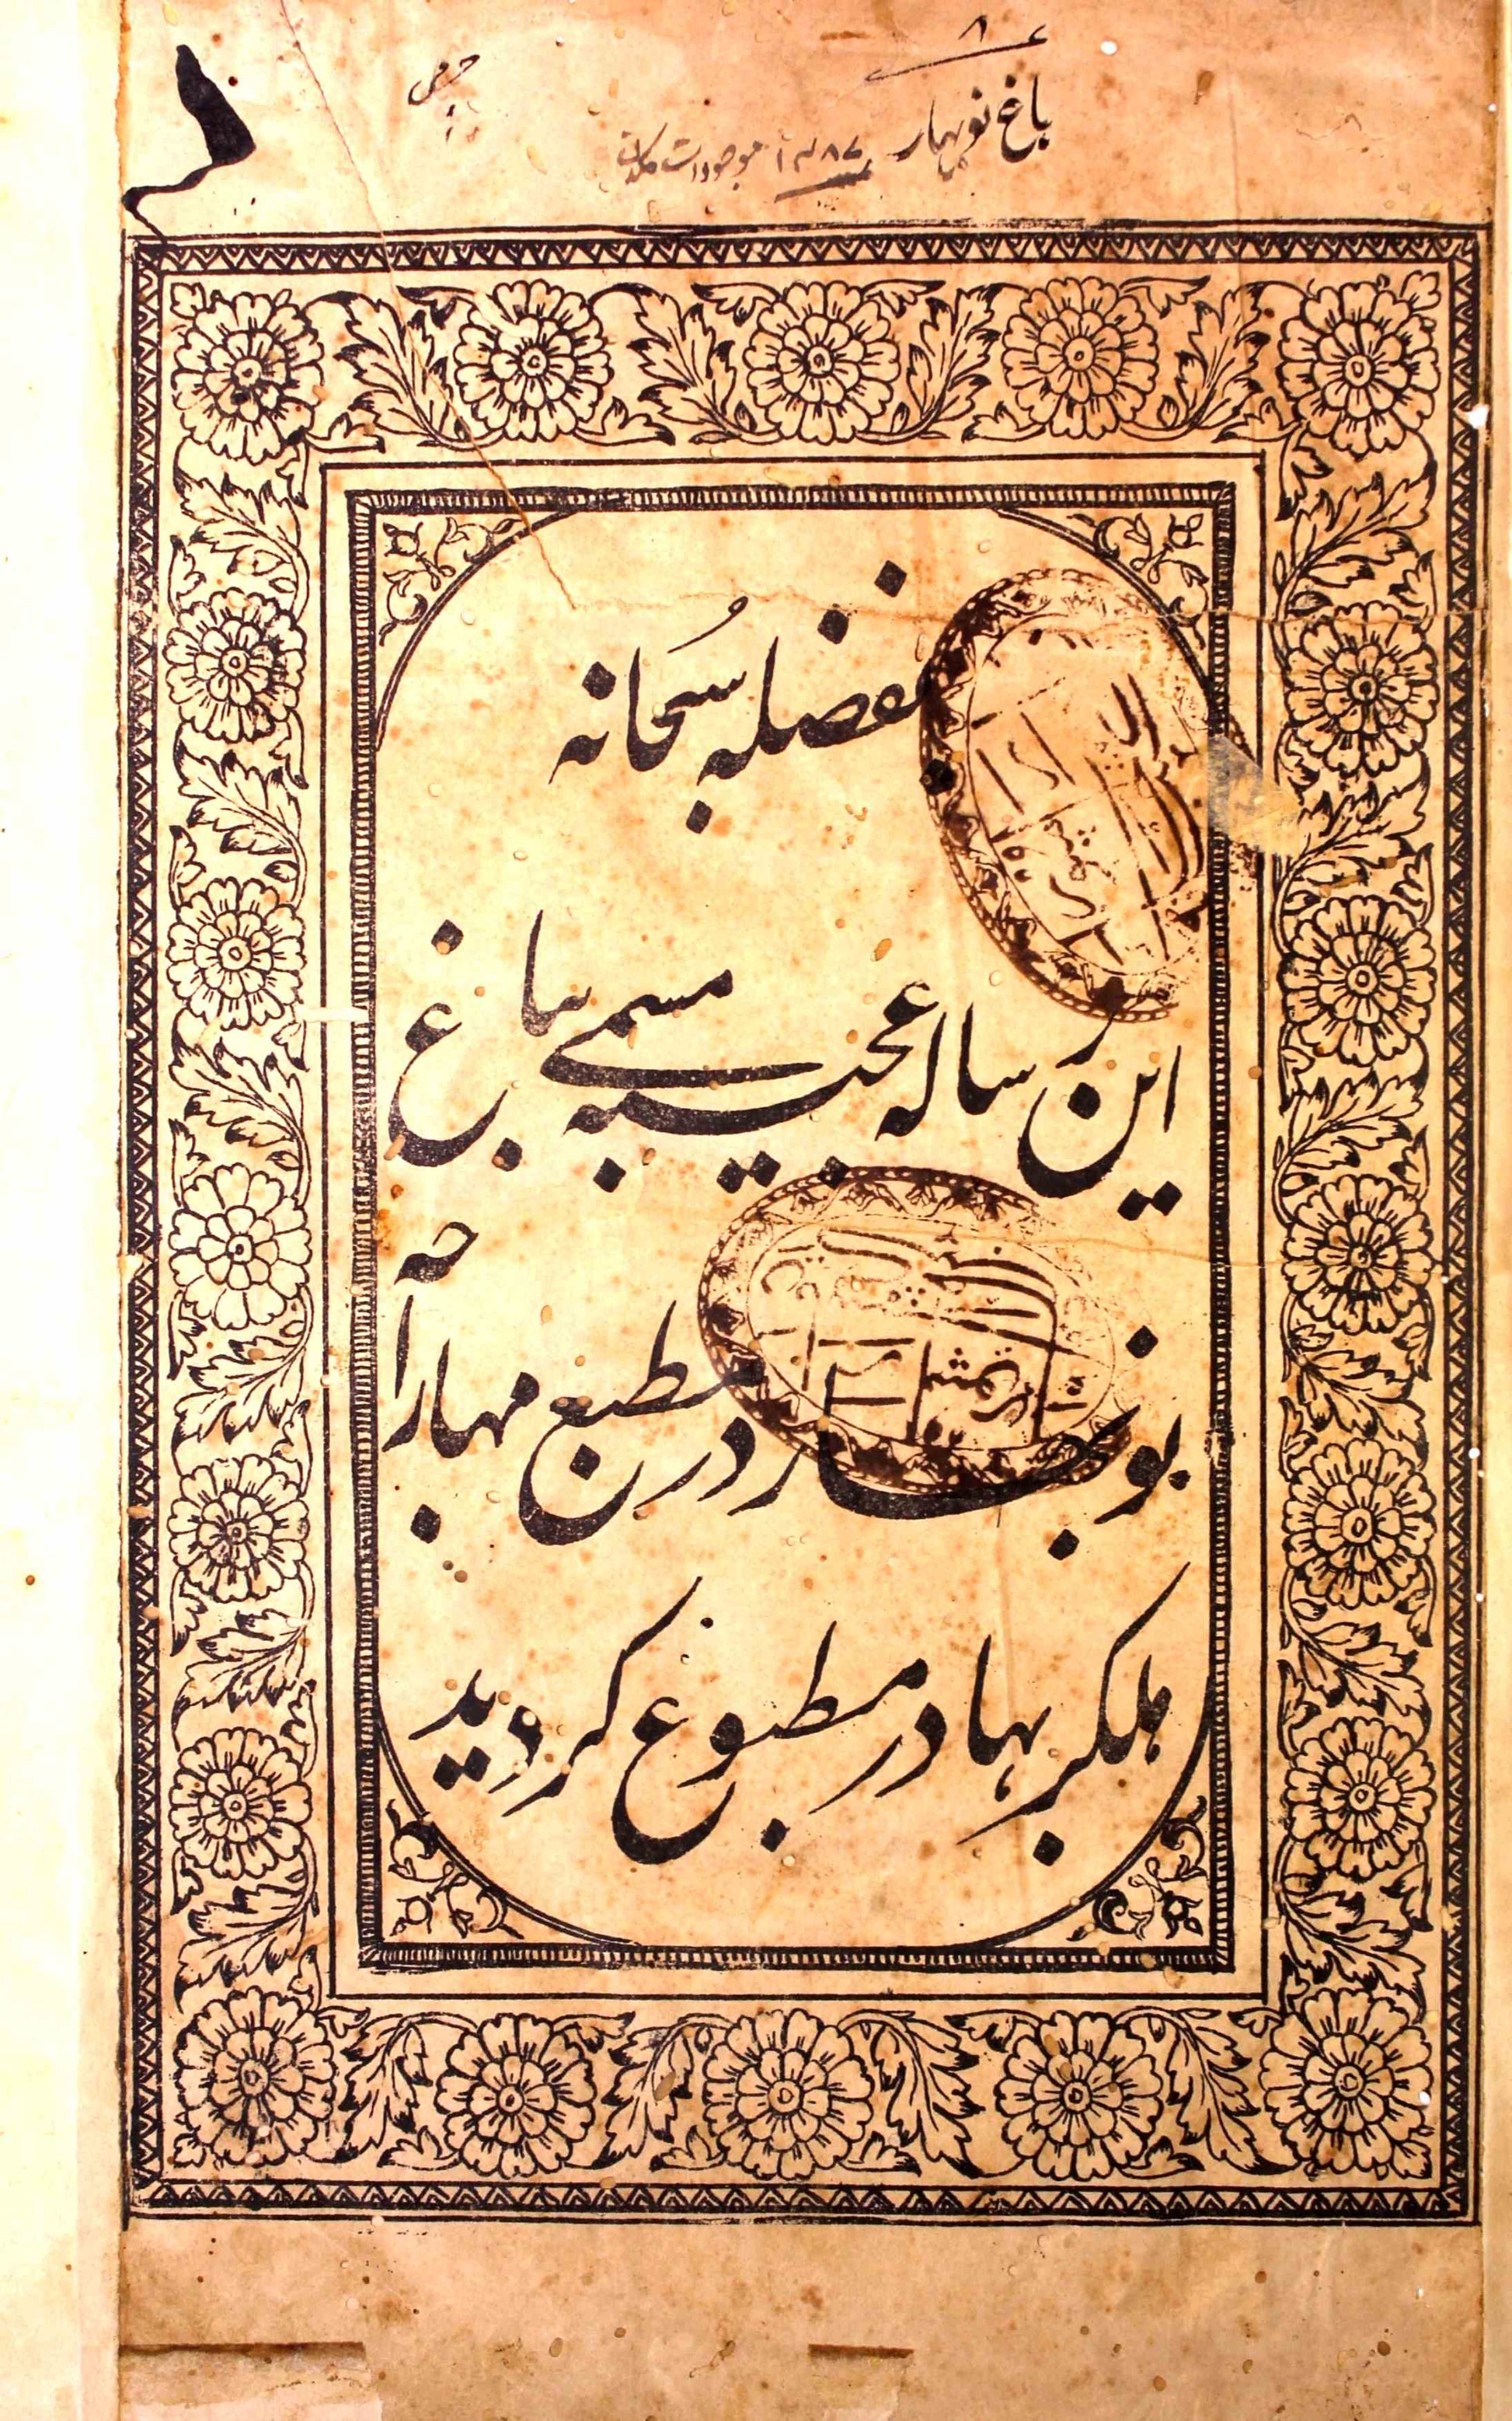 ۸
باغ نوبہار
بفضلہ سُبحانہ
این رسالہ عجیبہ مسمے بباغ
نوبہار در مطبع مہاراجہ
ہلکر بہادر مطبوع گردید